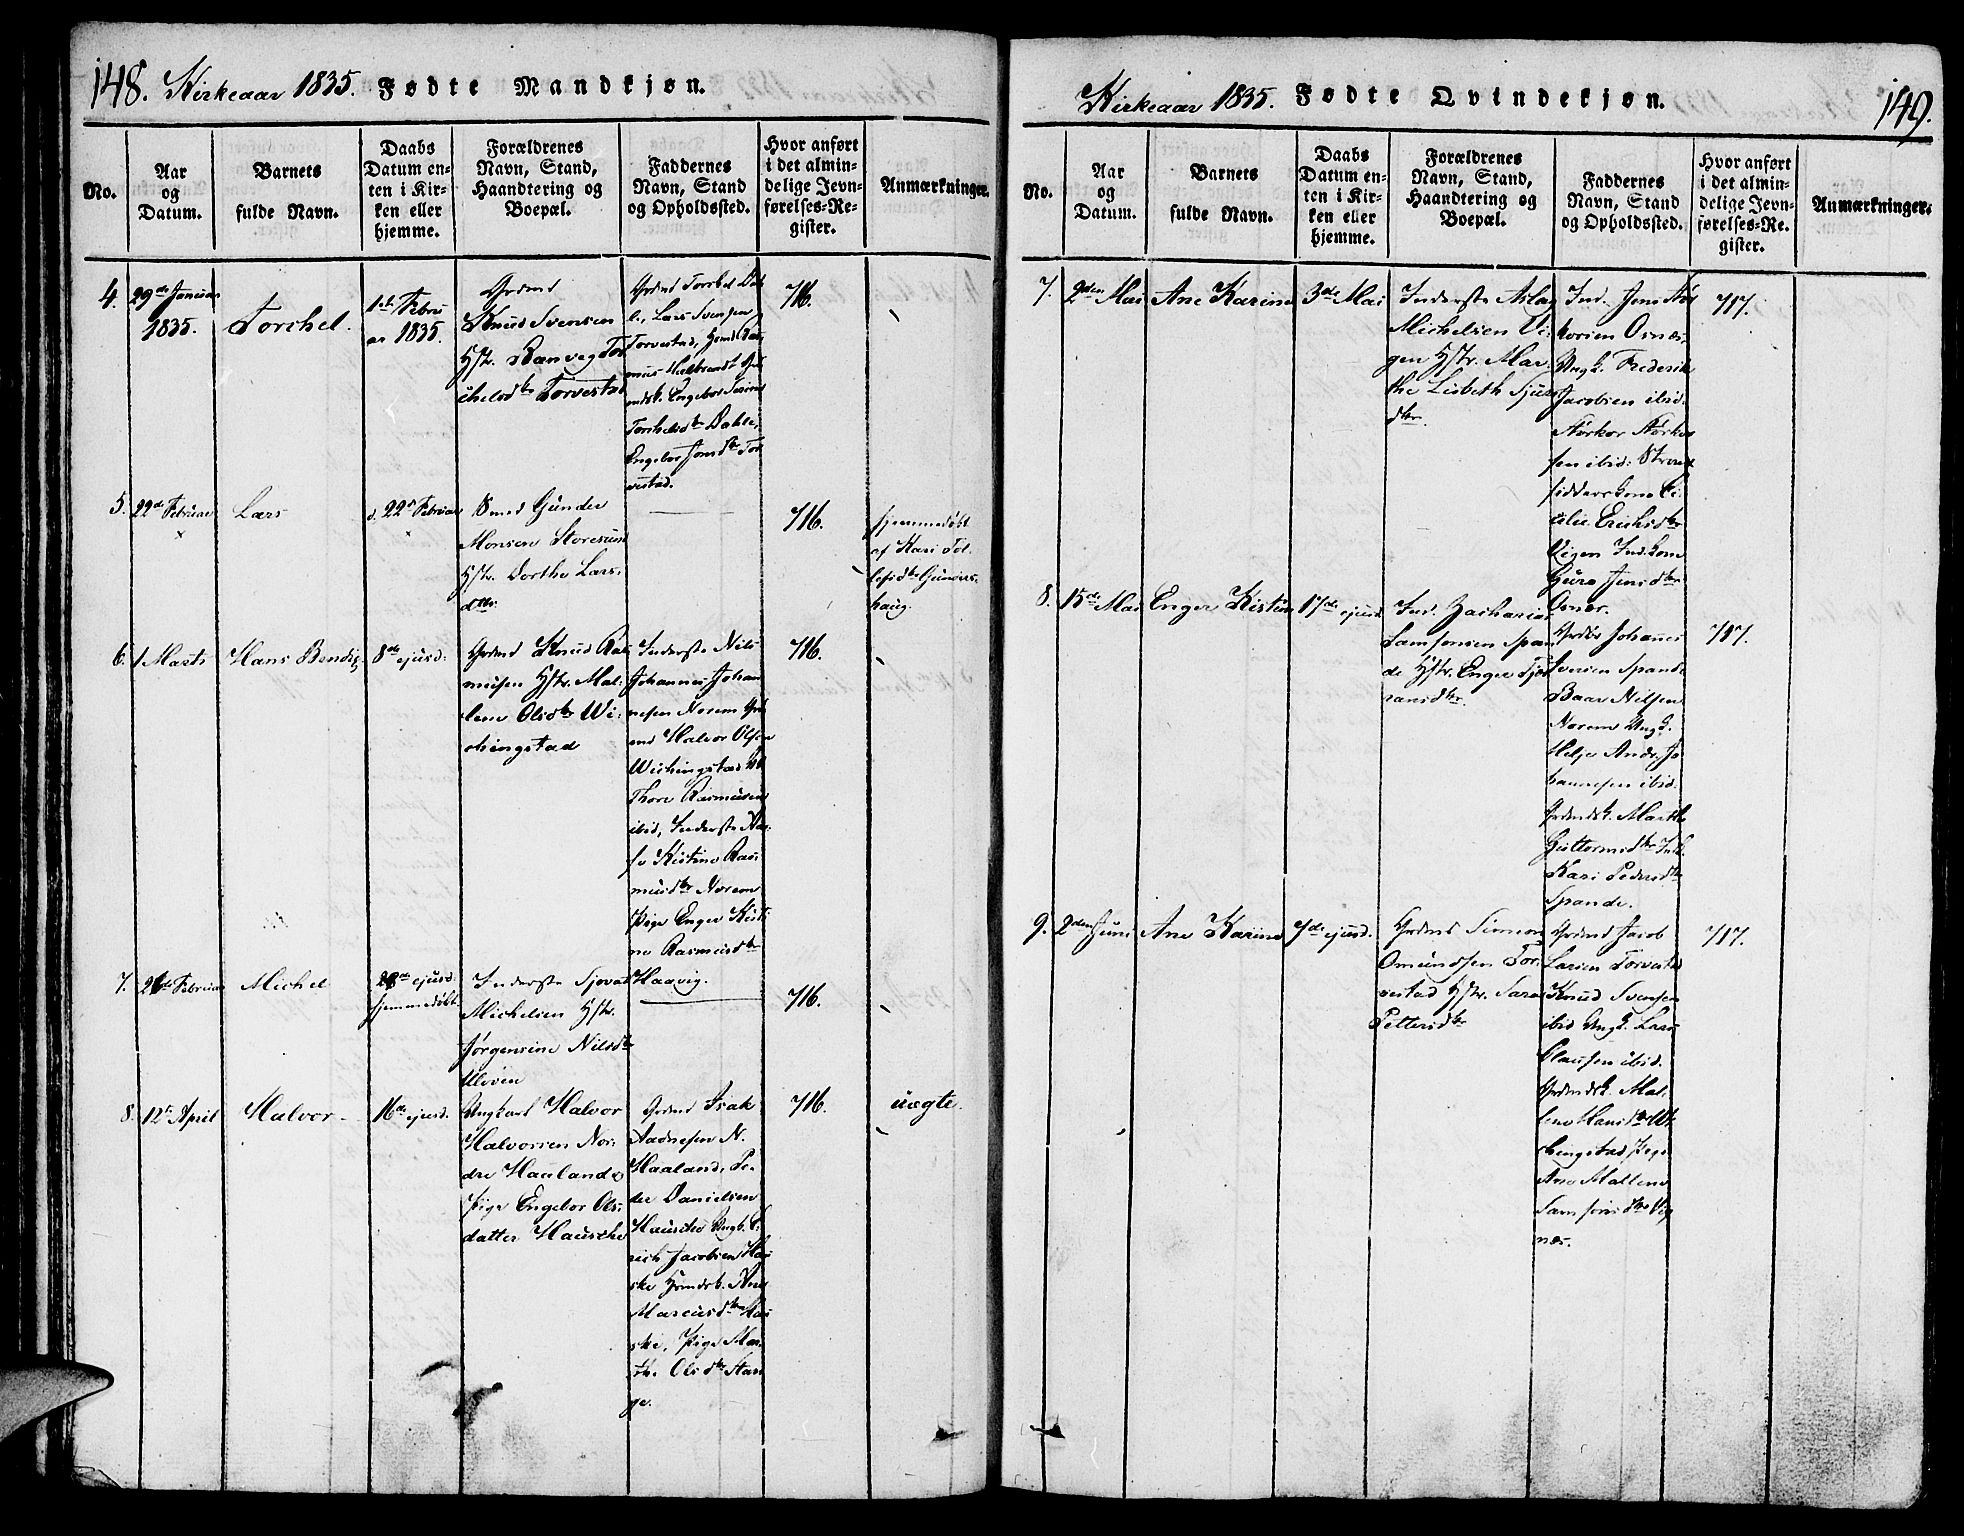 148. Kirkeaar 1835. Fødte Mandkjøn.
No.
Aar
og
Datum.
Barnets
fulde Navn.
Daabs
Datum en-
ten i Kir-
ken eller
hjemme.
Forældrenes
Navn, Stand,
Haandtering og
Boepæl.
Faddernes
Navn, Stand
og Opholdssted.
Hvor anført
i det almin-
delige Jevn-
førelses-Re-
gister.
Anmærkninger.
4.
29de Januar
1835.
Torchel.
1ste Febru
ar 1835.
Grdmd
Knud Svensen
Hstr. Ranveg Tor
chelsdtr Torvestad
Grdmd Torchel Dah
le, Lars Svensen
Torvestad,
Torchelsdtr Dahle,
Engebor Jonsdtr Tor
vestad.
716.
5.
22de Februar
Lars
d. 22de Februar
Smed Gunder
Monsen Storesund
Hstr. Dorthe Lars-
dtr.
716.
hjemmedøbt
af Kari Tol
lefsdtr Gunners
haug.
6.
1 Marts
Hans Bendix
8de ejusd.
Grdmd Knud Ras
musen Hstr. Mal-
lene Olsdtr Wi-
chingstad
Inderste Nils
Johannes Johan
nesen Norem Grd
md Halvor Olsen
Wichingstad
Thore Rasmusen
ibid, Inderste
Kistine Ras-
musdtr Norem
Pige Enger Kisti
ne Rasmusdtr
Haavig.
716.
7.
Februar
Michel
28de ejusd.
hjemmedøbt
Inderste Sjovat
Michelsen Hstr.
Jørgensine Nilsdtr
Uløen
716.
8.
12te April
Halvor
16de ejusd.
Ungkarl Halvor
Halvorsen Nor-
dre Haaland &
Pige Engebor Ols-
datter Hauske
Grdmd Isak
Aadnesen N.
Haaland, Pe-
der Danielsen
Hauske Ungk. E-
rich Jacobsen Hau
ske Grmdsk. Ane
Marcusdtr Hau
ske, Pige Mar
the Olsdtr Stan
ge.
716.
uægte.
Kirkeaar 1835. Fødte Qvindekjøn.
149.
No.
Aar
og
Datum.
Barnets
fulde Navn.
Daabs
Datum en-
ten i Kir-
ken eller
hjemme.
Forældrenes
Navn, Stand,
Haandtering og
Boepæl.
Faddernes
Navn, Stand
og Opholdssted.
Hvor anført
i det almin-
delige Jevn-
førelses-Re-
gister.
Anmærkninger.
7.
2den Mai
Ane Karine
3de Mai
Inderste Aslag
Michelsen Vi-
gen Hstr. Mar-
the Lisbeth Sjurs
dtr.
Ind. Jens Stør
korsen Osnes,
Ungk. Frederik
Jacobsen ibid.
Størkor Størkor
sen ibid: Strand
sidderskone Ce-
cilie Erichsdtr
Vigen Ind. kone
Guro Jensdtr
Osnes.
717.
8.
15de Mai
Enger Kistine
17de ejusd.
Ind. Zacharias
Samsonsen Span
de Hstr. Enger Tjøs
ransdtr.
Grdbr Johannes
Iversen Spande
Baar Nilsen
Norem Ungk.
Helje Andr. Jo
hannesen ibid.
Grdmdsk. Marthe
Guttormsdtr Ind.
Kari Pedersdtr
Spande.
717.
9.
2den Juni
Ane Karine
7de ejusd.
Grdmd Simon
Omundsen Tor-
vestad Hstr. Sara
Pettersdtr
Grdmd Jacob
Larsen Torvestad
Knud Svensen
ibid Ungk. Lars
Clausen ibid.
Grdmdsk. Mal-
lene Hansdtr Wi
chingstad, Pige
Ane Mallene
Samsonsdtr Vig
nes.
717.